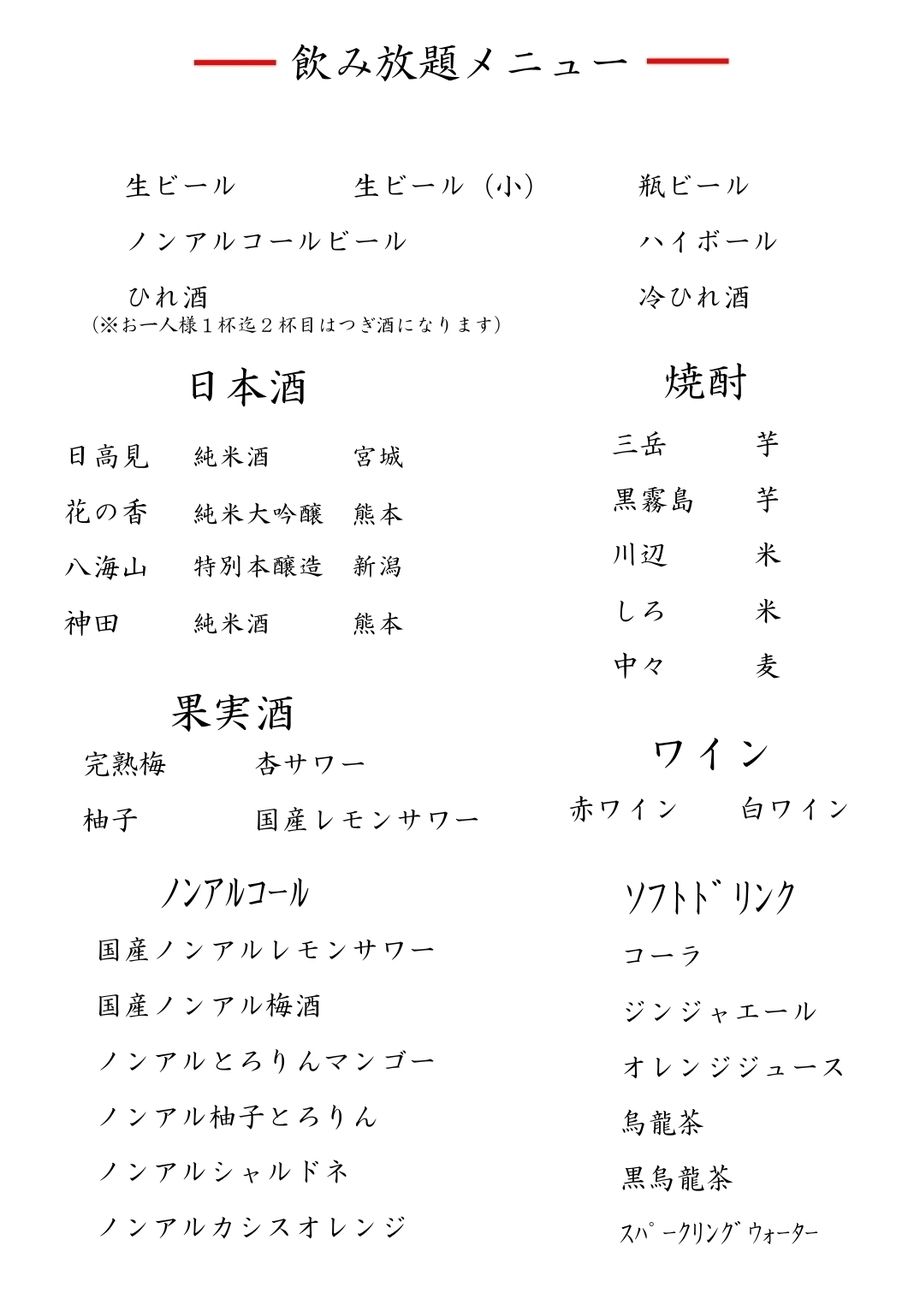 飲み放題メニュー
生ビール 生ビール（小） 瓶ビール
ノンアルコールビール ハイボール
ひれ酒 冷ひれ酒
（※お一人様１杯迄２杯目はつぎ酒になります）
日本酒
日高見 純米酒 宮城
花の香 純米大吟醸 熊本
八海山 特別本醸造 新潟
神田 純米酒 熊本
焼酎
三岳 芋
黒霧島 芋
川辺 米
しろ 米
中々 麦
果実酒
完熟梅 杏サワー
柚子 国産レモンサワー
ワイン
赤ワイン 白ワイン
ノンアルコール
国産ノンアルレモンサワー
国産ノンアル梅酒
ノンアルとろりんマンゴー
ノンアル柚子とろりん
ノンアルシャルドネ
ノンアルカシスオレンジ
ソフトドリンク
コーラ
ジンジャエール
オレンジジュース
烏龍茶
黒烏龍茶
スパークリングウォーター